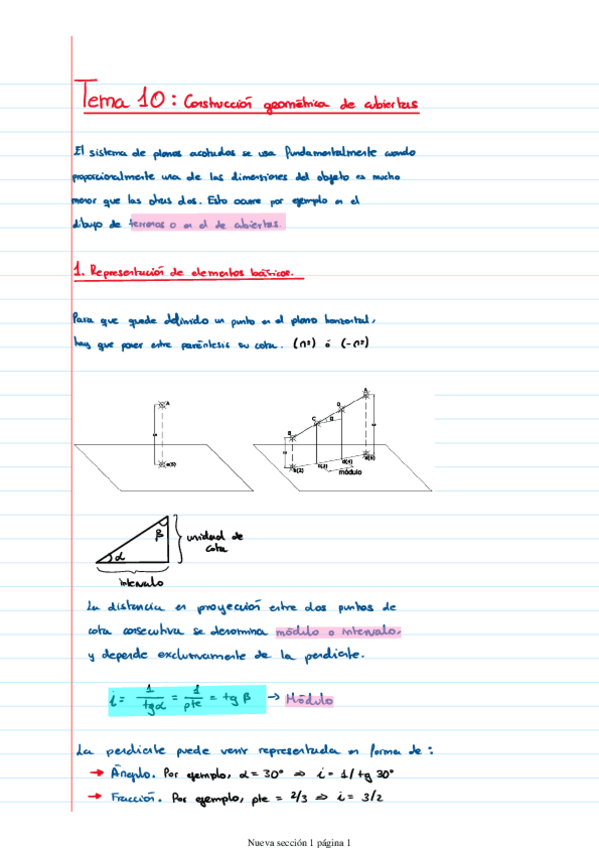 Tema 10: Construcción geométrica de cubiertas
El sistema de planos acotados se usa fundamentalmente cuando
proporcionalmente una de las dimensiones del objeto es mucho
menor que las otras dos. Esto ocurre por ejemplo en el
dibujo de terrenos o en el de cubiertas.
1. Representación de elementos básicos.
Para que quede definido un punto en el plano horizontal,
hay que poner entre paréntesis su cota. (nº) ó (-nº)
A
a(5)
A
D
C
B
b(2)
c(3)
d(4)
a(5)
módulo
β
α
unidad de
cota
intervalo
La distancia en proyección entre dos puntos de
cota consecutiva se denomina módulo o intervalo,
y depende exclusivamente de la pendiente.
i = 1/tgα = 1/pte = tg β → Módulo
La pendiente puede venir representada en forma de:
→ Ángulo. Por ejemplo, α = 30° ⇒ i = 1/tg 30°
→ Fracción. Por ejemplo, pte = 2/3 ⇒ i = 3/2
Nueva sección 1 página 1